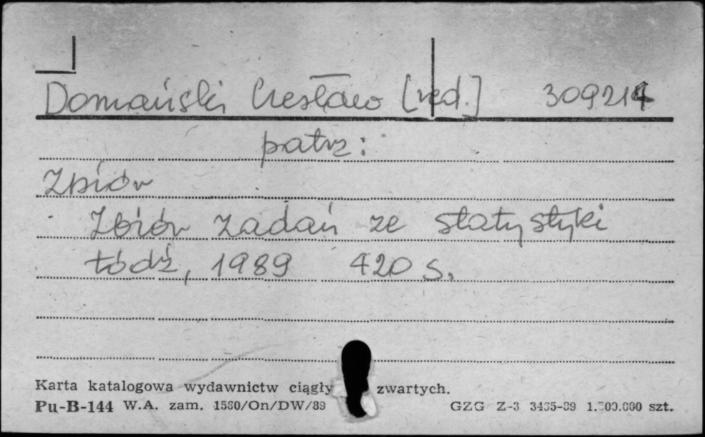 Domański Czesław [red.] 309214
patrz:
Zbiór
Zbiór zadań ze statystyki
Łódź, 1989 420 s.
Karta katalogowa wydawnictw ciągły zwartych.
Pu-B-144 W.A. zam. 1580/On/DW/89 GZG Z-3 3485-89 1.500.000 szt.